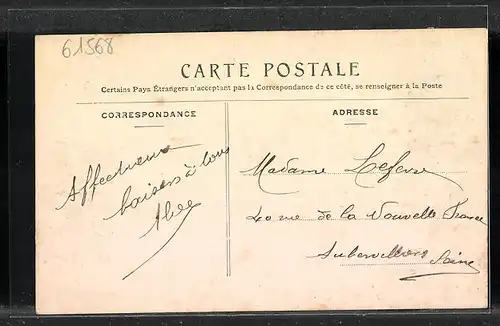 61568
CARTE POSTALE
Certains Pays Étrangers n'acceptent pas la Correspondance de ce côté, se renseigner à la Poste
CORRESPONDANCE
Affectueux
baisers à tous
ADRESSE
Madame Lefevre
rue de la Nouvelle France
Aubervilliers
Seine